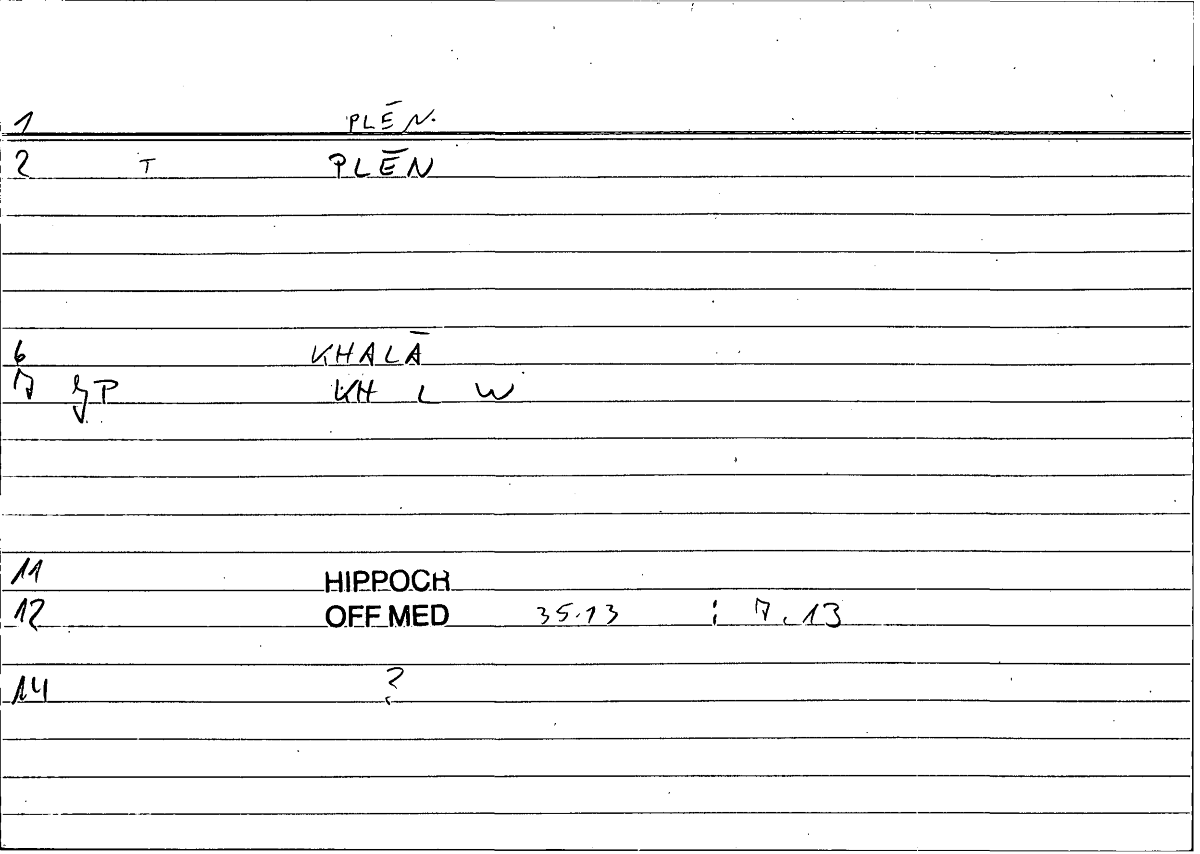 1 PLĒN.
2 T PLĒN
6 KHALĀ
7 P KH L W
11 HIPPOCR
12 OFF MED 35.13 ; 7.13
14 ?